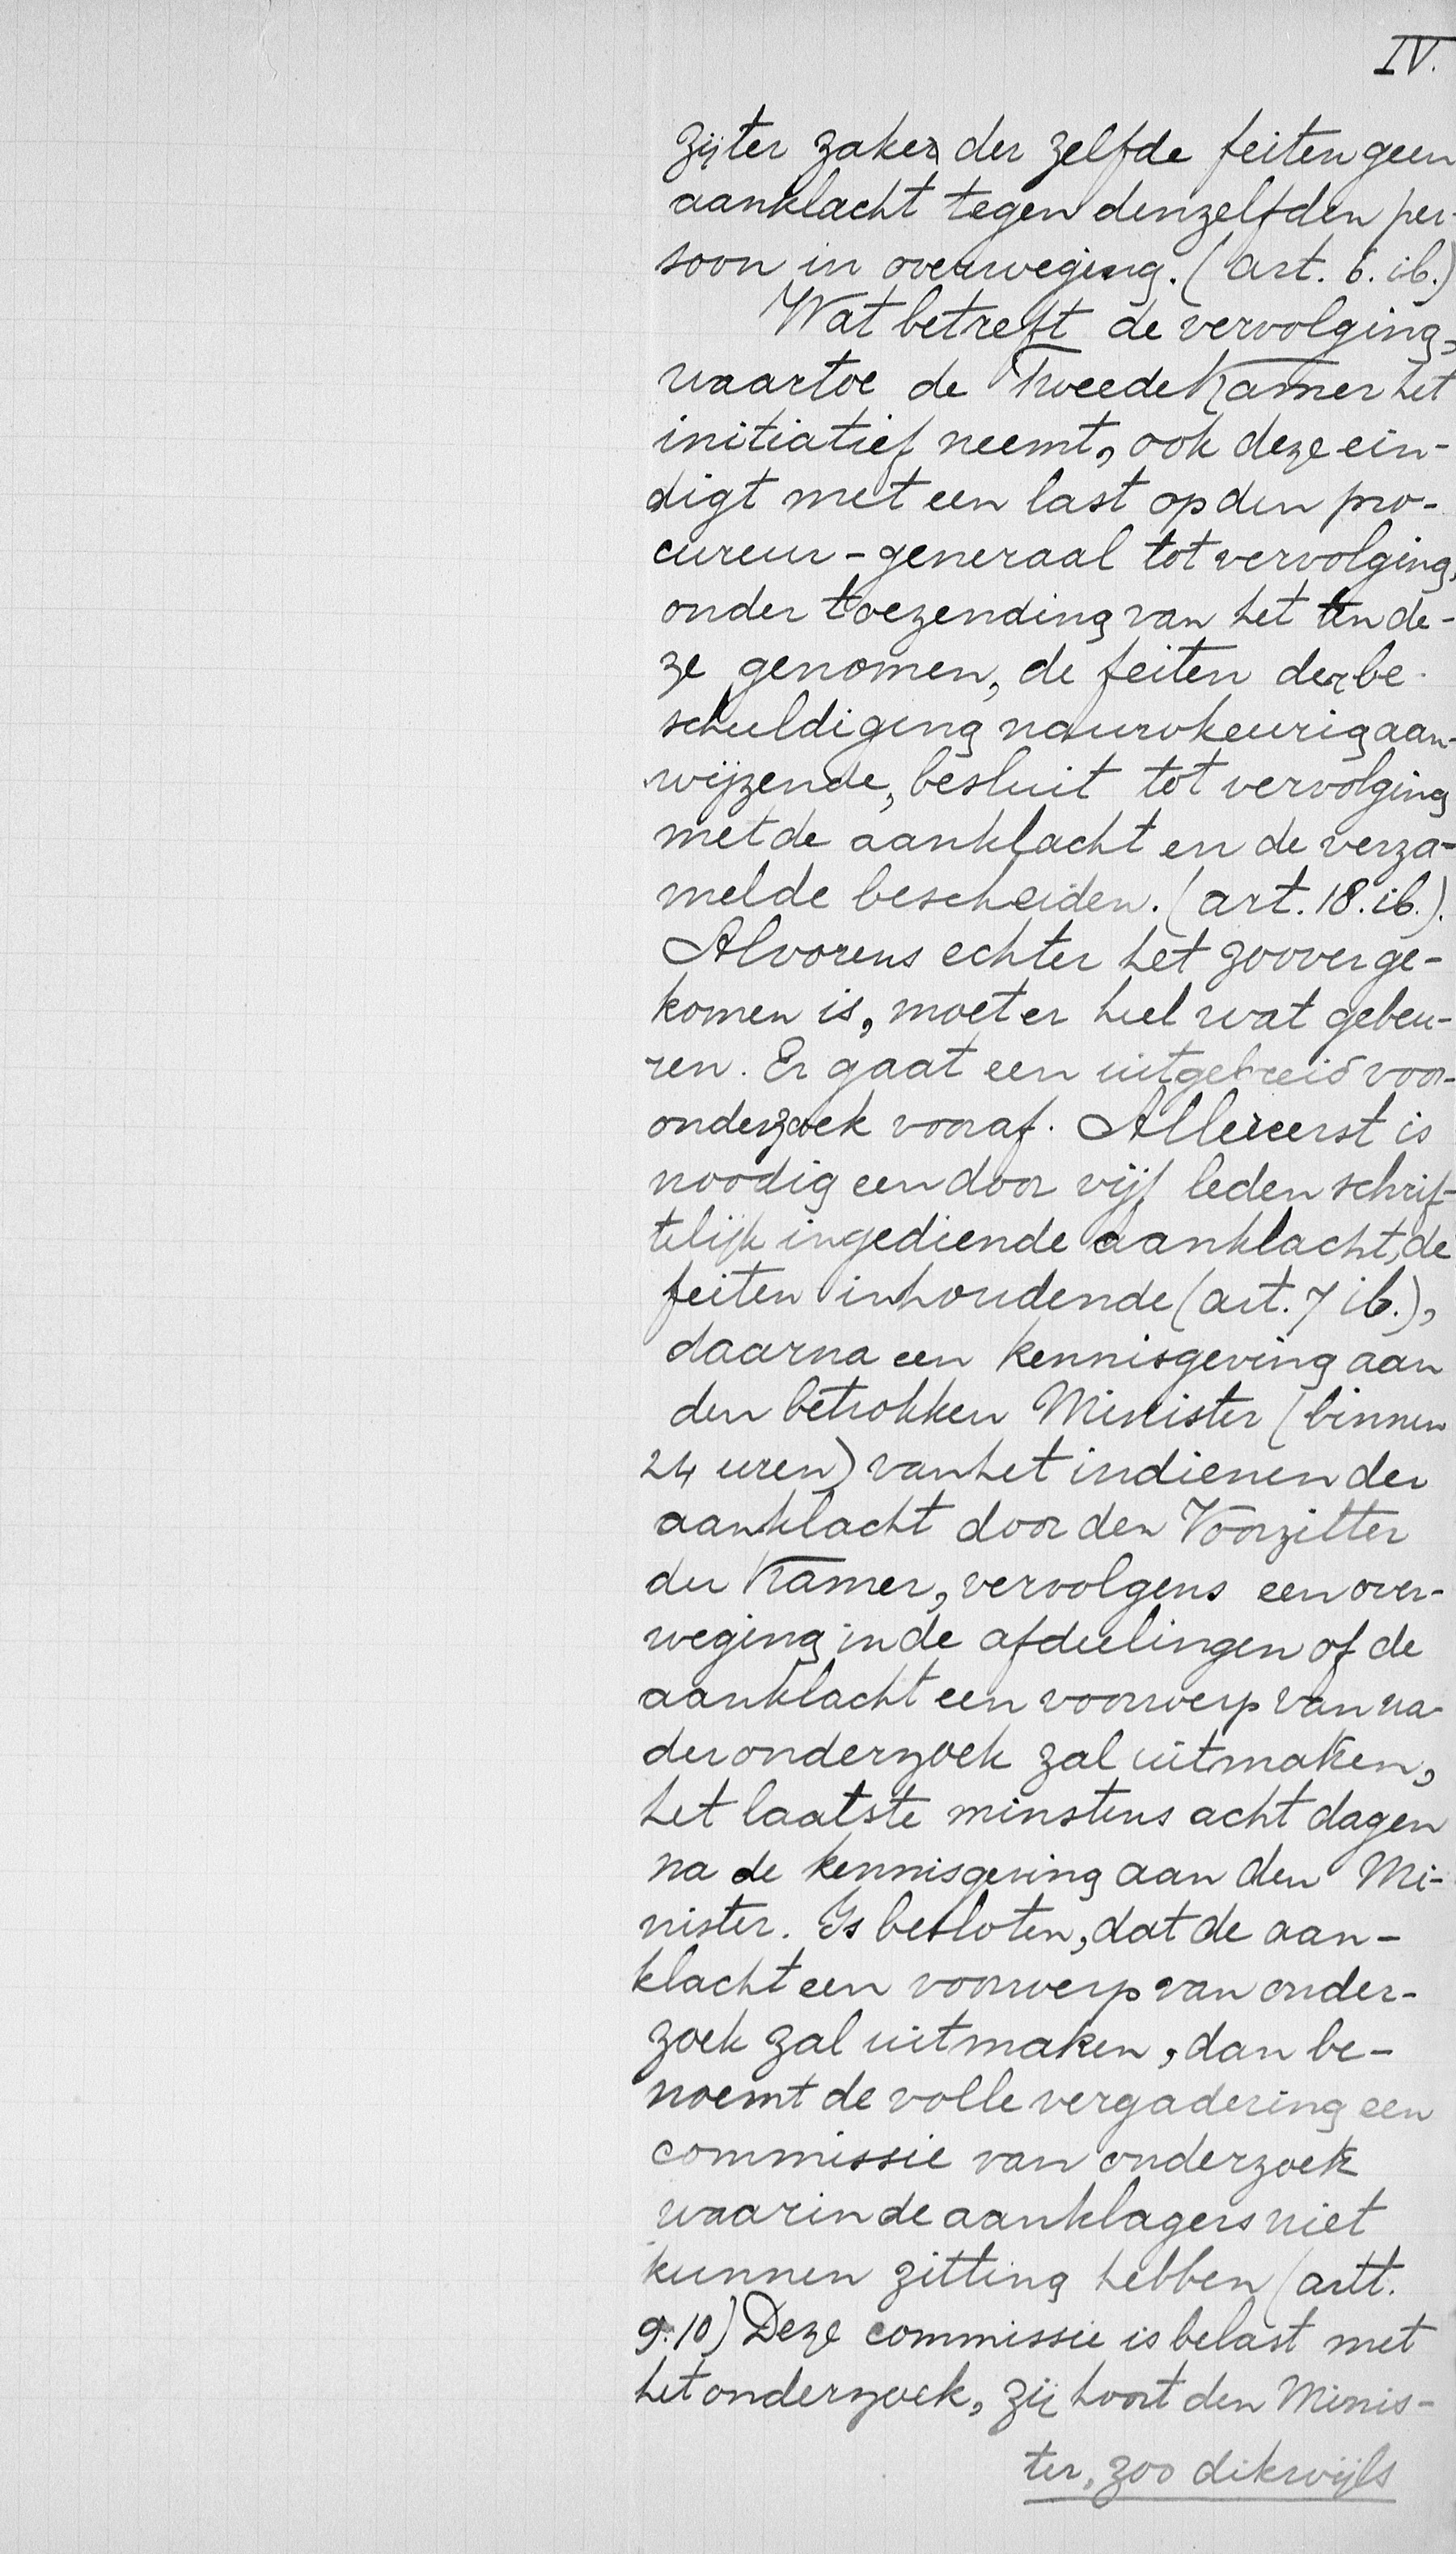 IV.
zij ter zake der zelfde feiten geen
aanklacht tegen denzelfden per-
soon in overweging. (art. 6. ib.)
Wat betreft de vervolging,
waartoe de Tweede Kamer het
initiatief neemt, ook deze ein-
digt met een last op den pro-
cureur-generaal tot vervolging,
onder toezending van het ten de-
ze genomen, de feiten der be-
schuldiging nauwkeurig aan-
wijzende, besluit tot vervolging
met de aanklacht en de verza-
melde bescheiden. (art. 18. ib.).
Alvorens echter het zoover ge-
komen is, moet er heel wat gebeu-
ren. Er gaat een uitgebreid voor-
onderzoek vooraf. Allereerst is
noodig een door vijf leden schrif-
telijk ingediende aanklacht, de
feiten inhoudende (art. 7 ib.),
daarna een kennisgeving aan
den betrokken Minister (binnen
24 uren) van het indienen der
aanklacht door den Voorzitter
der Kamer, vervolgens een over-
weging in de afdeelingen of de
aanklacht een voorwerp van na-
der onderzoek zal uitmaken,
het laatste minstens acht dagen
na de kennisgeving aan den Mi-
nister. Is besloten, dat de aan-
klacht een voorwerp van onder-
zoek zal uitmaken, dan be-
noemt de volle vergadering een
commissie van onderzoek
waarin de aanklagers niet
kunnen zitting hebben (artt.
9.10) Deze commissie is belast met
het onderzoek, zij hoort den Minis-
ter, zoo dikwijls